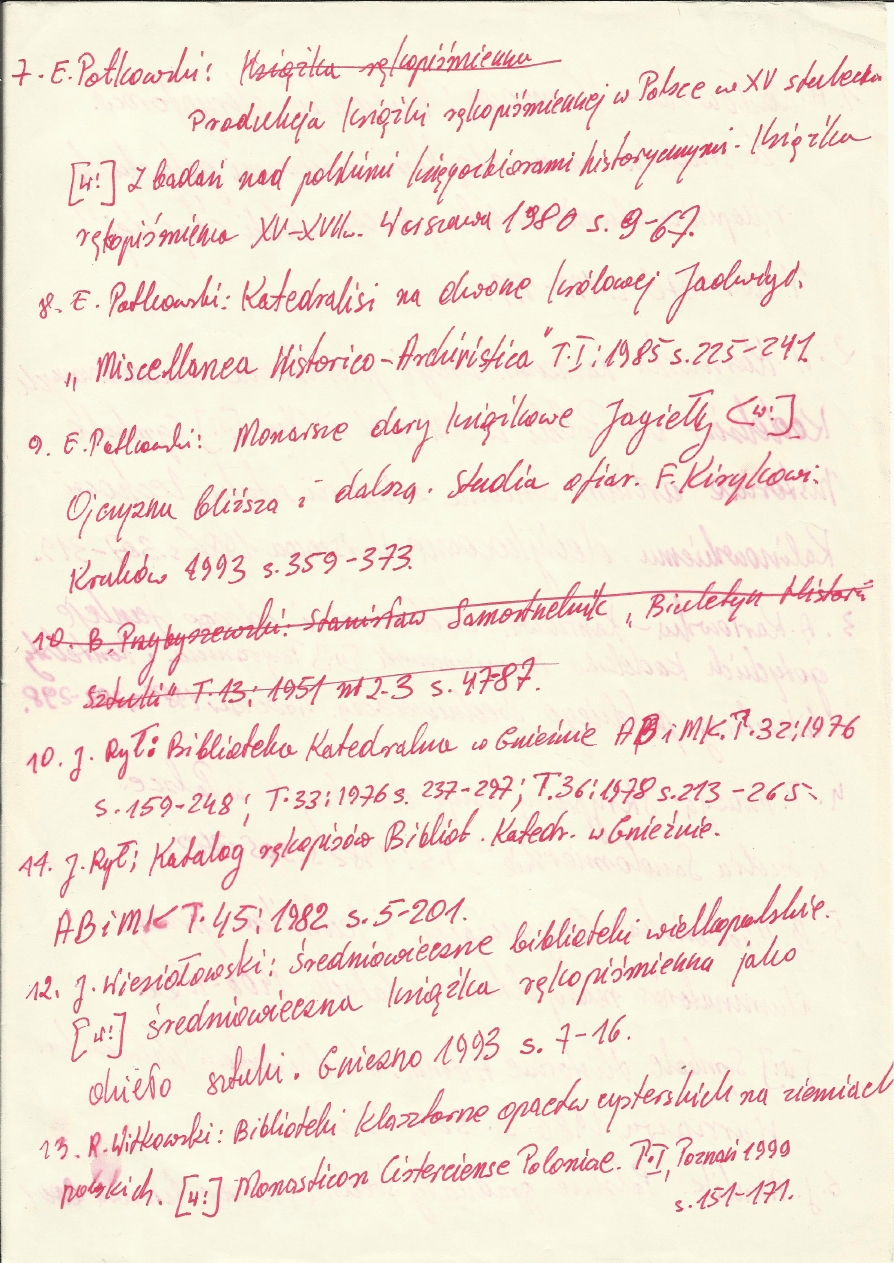 7. E. Potkowski: Książka rękopiśmienna
Produkcja książki rękopiśmiennej w Polsce w XV stuleciu
[w:] Z badań nad polskimi księgozbiorami historycznymi. Książka
rękopiśmienna XV–XVIIw. Warszawa 1980 s. 9–67.
8. E. Potkowski: Katedralisi na dworze królowej Jadwigi.
„Miscellanea Historico–Archivistica" T. I: 1985 s. 225–241.
9. E. Potkowski: Monarsze dary książkowe Jagiełły [w:]
Ojczyzna bliższa i dalsza. Studia ofiar. F. Kirykowi.
Kraków 1993 s. 359–373.
10. B. Przybyszewski: Stanisław Samostrzelnik „Biuletyn Historii
Sztuki" T. 13: 1951 nr 2–3 s. 47–87.
10. J. Rył: Biblioteka Katedralna w Gnieźnie ABiMK. T. 32: 1976
s. 159–248; T. 33: 1976 s. 237–297; T. 36: 1978 s. 213–265
11. J. Rył; Katalog rękopisów Bibliot. Katedr. w Gnieźnie.
ABiMK T. 45: 1982 s. 5–201.
12. J. Wiesiołowski: Średniowieczne biblioteki wielkopolskie.
[w:] Średniowieczna książka rękopiśmienna jako
dzieło sztuki. Gniezno 1993 s. 7–16.
13. R. Witkowski: Biblioteki klasztorne opactw cysterskich na ziemiach
polskich. [w:] Monasticon Cisterciense Poloniae. T. I, Poznań 1999
s. 151–171.